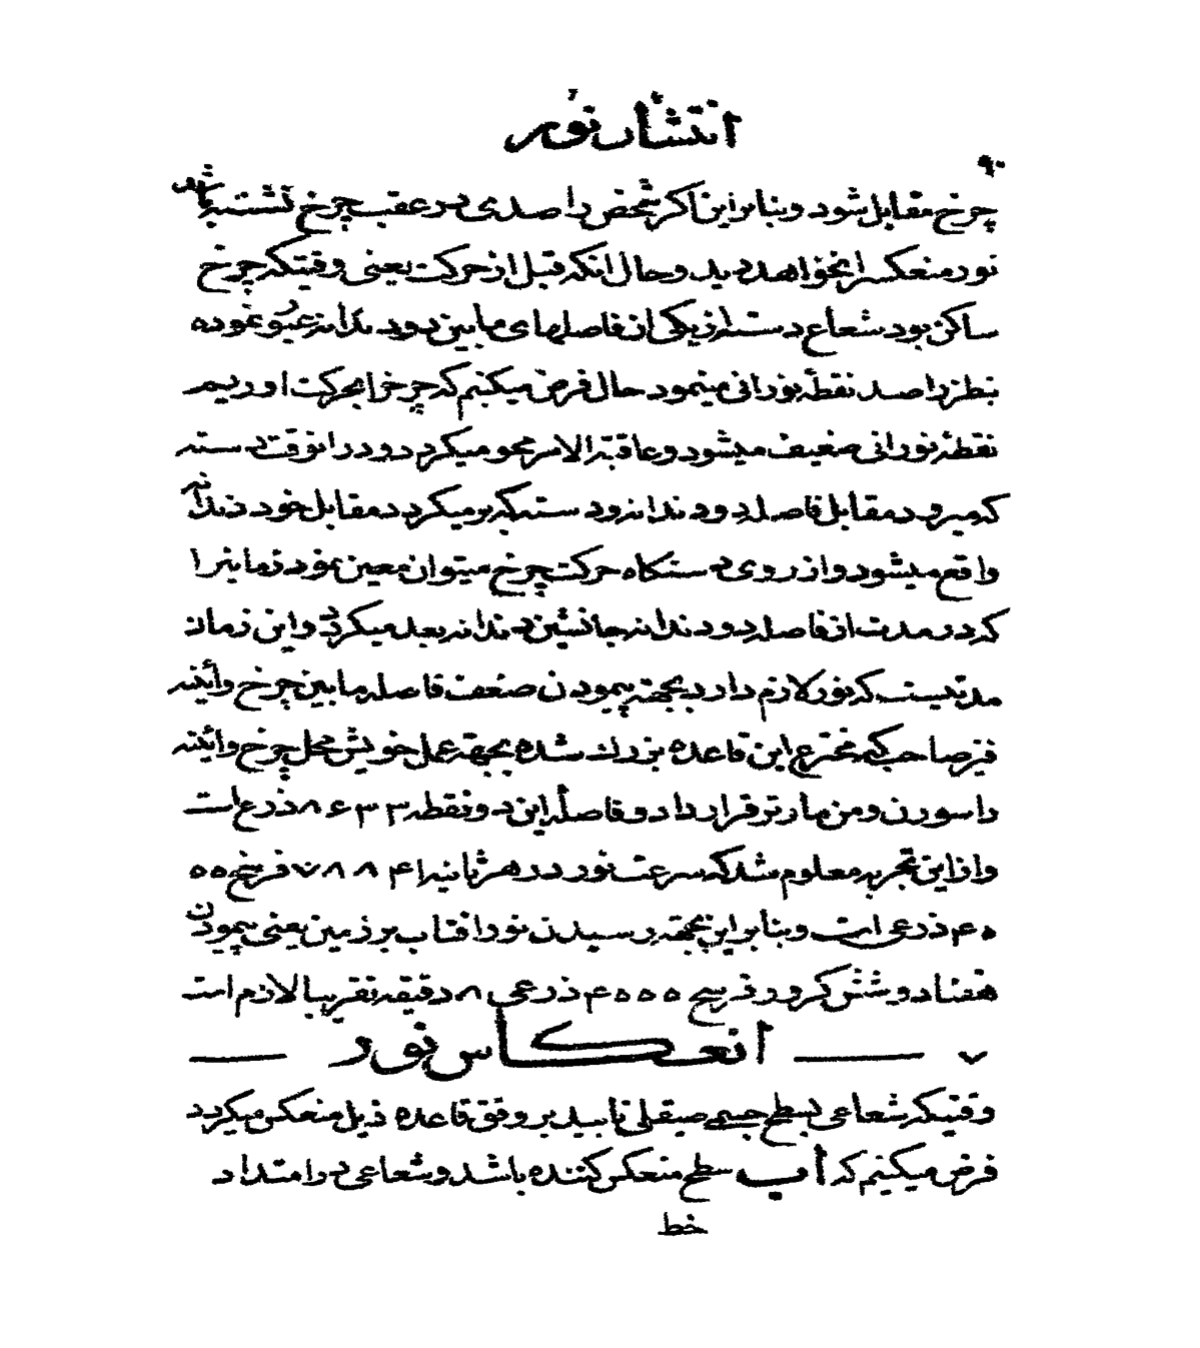 انتشار نور
۹۰
چرخ مقابل شود و بنابراین اگر شخص راصدی در عقب چرخ نشسته باشد
نور منعکس را نخواهد دید و حال آنکه قبل از حرکت یعنی وقتیکه چرخ
ساکن بود شعاع دسته از یکی از فاصلهای مابین دو دندانه عبور نموده
بنظر راصد نقطهٔ نورانی مینمود حال فرض میکنیم که چرخ را بحرکت اوریم
نقطهٔ نورانی ضعیف میشود و عاقبة الامر محو میکردد و در انوقت دسته
که میرود مقابل فاصله دو دندانه و دستیکه برمیکردد مقابل خود دندانه
واقع میشود و از روی دستکاه حرکت چرخ میتوان معین نمود زمانیرا
که در مدت ان فاصله دو دندانه جانشین دندانه بعد میکردد و این زمان
مدتیست که نور لازم دارد بجهته پیمودن ضعف فاصله مابین چرخ وآئینه
فیزو صاحب که مخترع این قاعده بزرك شده بجهته عمل خویش محل چرخ وآئینه
را سورن و من مارتر قرار داد و فاصلهٔ این دو نقطه ۸۶۳۳ ذرع است
و از این تجربه معلوم شد که سرعت نور در هر ثانیه ۷۸۸۴۱ فرسخ ۵۵
۵۴ ذرعی است و بنابراین بجهته رسیدن نور افتاب بر زمین یعنی پیمودن
هفتاد و شش کرور فرسخ ۴۵۵۵ ذرعی ۸ دقیقه تقریبا لازم است
۷ انعکاس نور
وقتیکه شعاعی بسطح جسمی صیقلی تابید بر وفق قاعده ذیل منعکس میکردد
فرض میکنیم که اب سطح منعکس کننده باشد و شعاعی در امتداد
خط